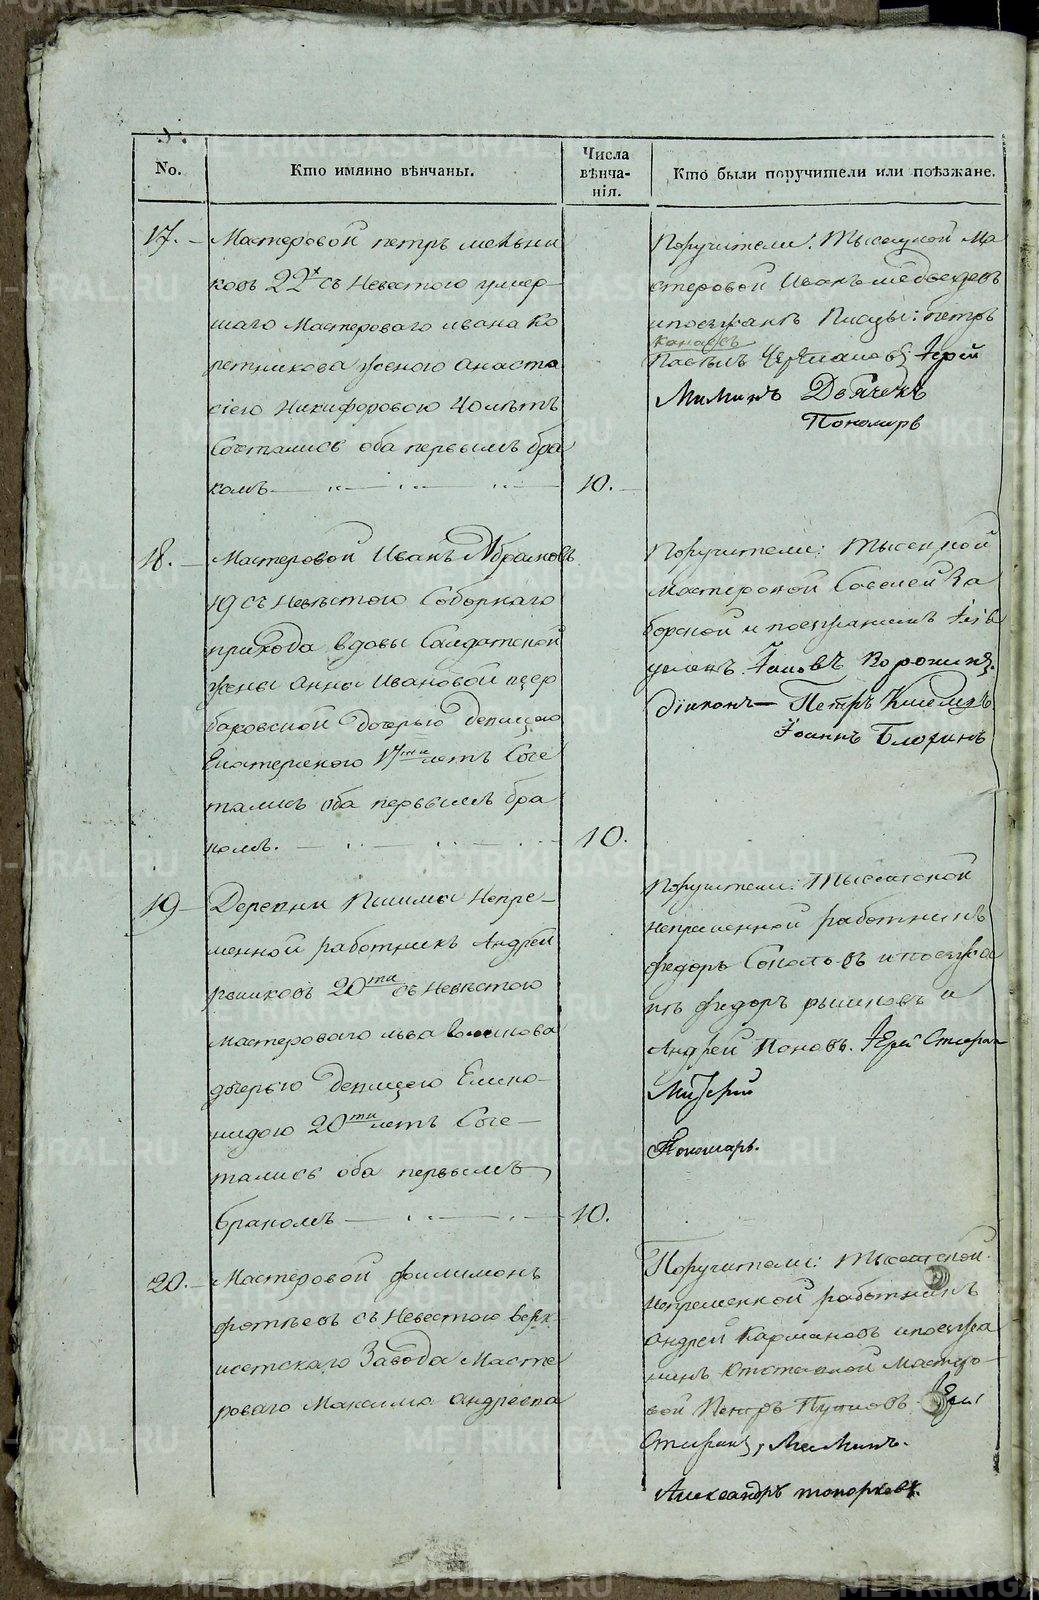 No.
Кто имянно вѣнчаны.
Числа
вѣнча-
нія.
Кто были поручители или поѣзжане.
17.
Мастеровой петръ мельни
ковъ 22х съ Невестою умер-
шаго Мастероваго ивана Ко
ретникова женою анаста
сіею Никифоровою 40 летъ
Сочтались оба первымъ бра
комъ
10.
Поручители: Тысецкой Ма
стеровой Иванъ медведевъ
ипоезжанѣ Писцы: петръ
Павелъ Черепановъ Іерей
Маминъ Дьячекъ
Пономарь
18.
Мастеровой Иванъ Абрамовъ
19 съ Невѣстою Соборнаго
прихода вдовы Салдатской
жены Анны Ивановой щер
баковской дочерью девицею
Екатериною 17ти летъ Соче
тались оба первымъ бра
комъ.
10.
Поручители: Тысецкой
Мастеровой Савелей За
борской и поезжанинъ
Іаковъ Воронинъ.
Діяконъ Петръ Киселевъ
Іоаннъ Блохинъ
19
Деревни Пышмы Непре-
менной работникъ Андрей
20ти съ Невѣстою
мастероваго льва
дочерью девицею Елико-
нидою 20ти летъ Соче-
тались оба первымъ
бракомъ
10.
Поручители: Тысецкой
непременной работникъ
федоръ Соколовъ ипоезжа
нѣ федоръ и
Андрей Поповъ. Іерей Стефан
Ма
Пономарь.
20.
Мастеровой филимонъ
фотѣевъ съ Невестою верх
исетскаго Завода Масте
роваго Максима андреева
Поручители: тысетской
непременной работникъ
андрей Кармановъ ипоезжа
нинъ отставной мастеро-
вой Петръ Пупковъ Іерей
Стефанъ Маминъ.
Александръ топорковъ.
METRIKI.GASO-URAL.RU